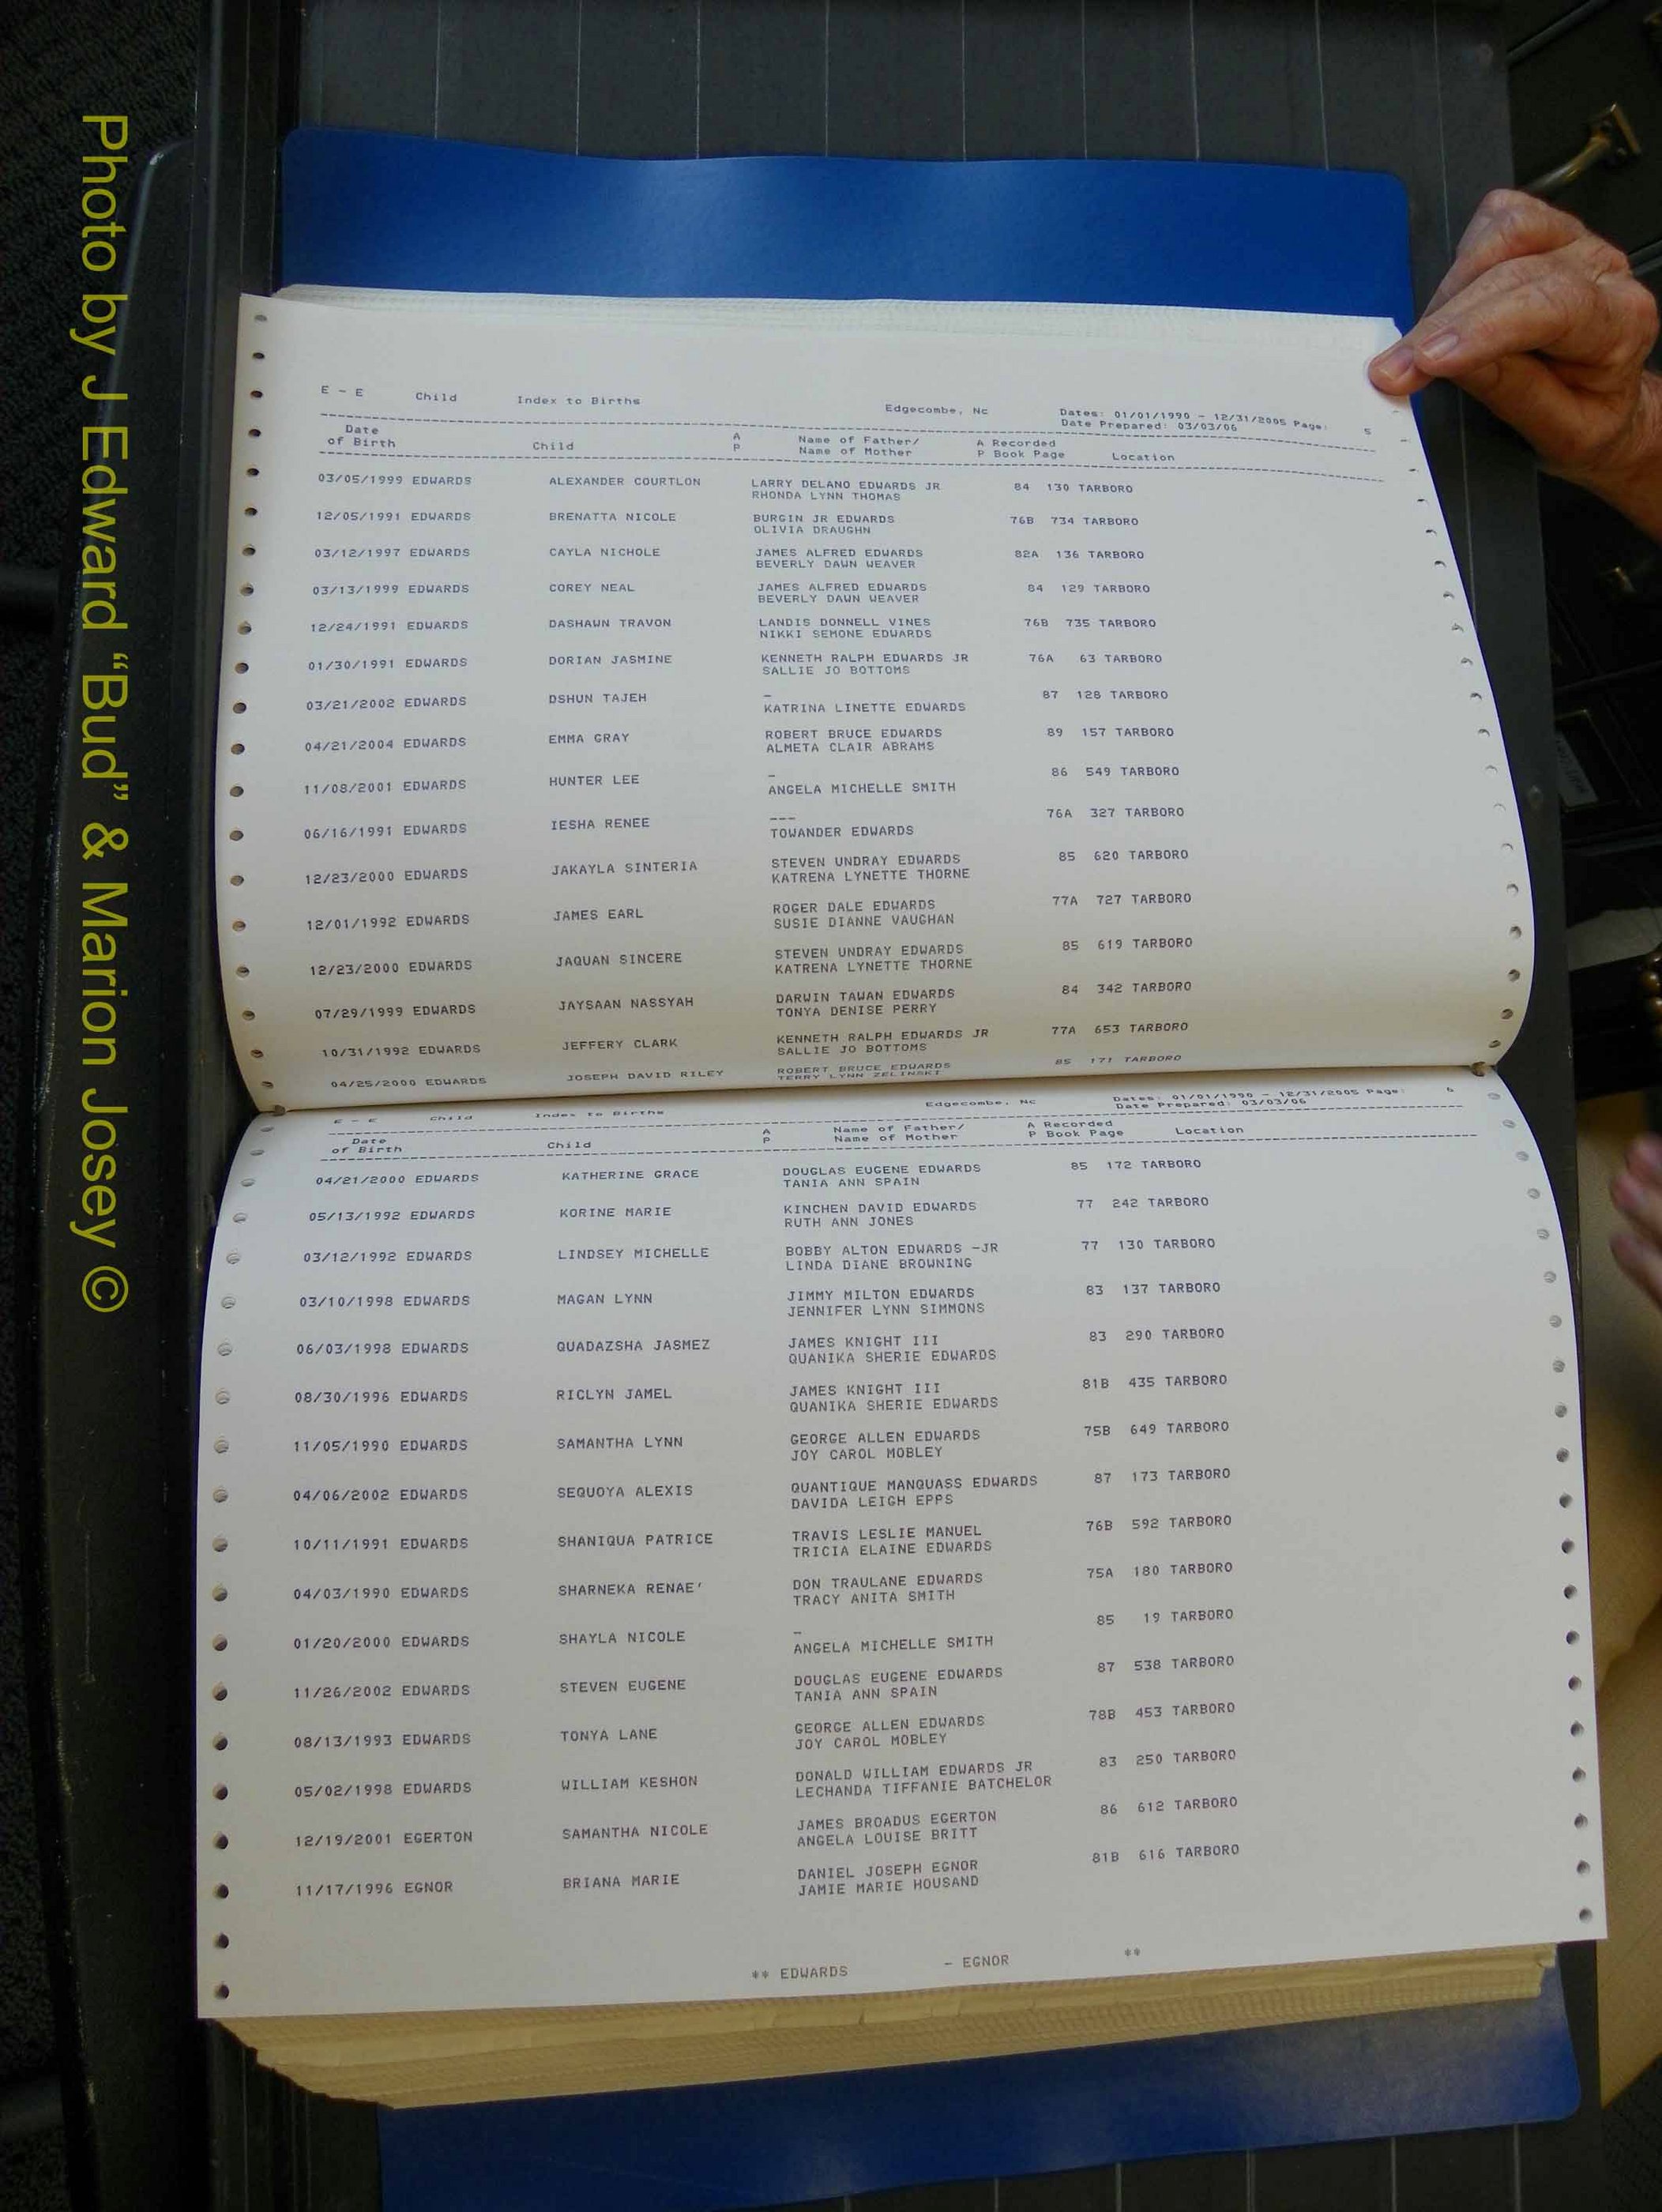 Photo by J Edward “Bud” & Marion Josey ©
E - E Child Index to Births Edgecombe, Nc Dates: 01/01/1990 - 12/31/2005 Page: 5
Date Prepared: 03/03/06
Date of Birth Child A P Name of Father/ Name of Mother A P Recorded Book Page Location
03/05/1999 EDWARDS ALEXANDER COURTLON LARRY DELANO EDWARDS JR 84 130 TARBORO
RHONDA LYNN THOMAS
12/05/1991 EDWARDS BRENATTA NICOLE BURGIN JR EDWARDS 76B 734 TARBORO
OLIVIA DRAUGHN
03/12/1997 EDWARDS CAYLA NICHOLE JAMES ALFRED EDWARDS 82A 136 TARBORO
BEVERLY DAWN WEAVER
03/13/1999 EDWARDS COREY NEAL JAMES ALFRED EDWARDS 84 129 TARBORO
BEVERLY DAWN WEAVER
12/24/1991 EDWARDS DASHAWN TRAVON LANDIS DONNELL VINES 76B 735 TARBORO
NIKKI SEMONE EDWARDS
01/30/1991 EDWARDS DORIAN JASMINE KENNETH RALPH EDWARDS JR 76A 63 TARBORO
SALLIE JO BOTTOMS
03/21/2002 EDWARDS DSHUN TAJEH - 87 128 TARBORO
KATRINA LINETTE EDWARDS
04/21/2004 EDWARDS EMMA GRAY ROBERT BRUCE EDWARDS 89 157 TARBORO
ALMETA CLAIR ABRAMS
11/08/2001 EDWARDS HUNTER LEE - 86 549 TARBORO
ANGELA MICHELLE SMITH
06/16/1991 EDWARDS IESHA RENEE --- 76A 327 TARBORO
TOWANDER EDWARDS
12/23/2000 EDWARDS JAKAYLA SINTERIA STEVEN UNDRAY EDWARDS 85 620 TARBORO
KATRENA LYNETTE THORNE
12/01/1992 EDWARDS JAMES EARL ROGER DALE EDWARDS 77A 727 TARBORO
SUSIE DIANNE VAUGHAN
12/23/2000 EDWARDS JAQUAN SINCERE STEVEN UNDRAY EDWARDS 85 619 TARBORO
KATRENA LYNETTE THORNE
07/29/1999 EDWARDS JAYSAAN NASSYAH DARWIN TAWAN EDWARDS 84 342 TARBORO
TONYA DENISE PERRY
10/31/1992 EDWARDS JEFFERY CLARK KENNETH RALPH EDWARDS JR 77A 653 TARBORO
SALLIE JO BOTTOMS
04/25/2000 EDWARDS JOSEPH DAVID RILEY ROBERT BRUCE EDWARDS 85 171 TARBORO
TERRY LYNN ZELINSKI
E - E Child Index to Births Edgecombe, Nc Dates: 01/01/1990 - 12/31/2005 Page: 6
Date Prepared: 03/03/06
Date of Birth Child A P Name of Father/ Name of Mother A P Recorded Book Page Location
04/21/2000 EDWARDS KATHERINE GRACE DOUGLAS EUGENE EDWARDS 85 172 TARBORO
TANIA ANN SPAIN
05/13/1992 EDWARDS KORINE MARIE KINCHEN DAVID EDWARDS 77 242 TARBORO
RUTH ANN JONES
03/12/1992 EDWARDS LINDSEY MICHELLE BOBBY ALTON EDWARDS -JR 77 130 TARBORO
LINDA DIANE BROWNING
03/10/1998 EDWARDS MAGAN LYNN JIMMY MILTON EDWARDS 83 137 TARBORO
JENNIFER LYNN SIMMONS
06/03/1998 EDWARDS QUADAZSHA JASMEZ JAMES KNIGHT III 83 290 TARBORO
QUANIKA SHERIE EDWARDS
08/30/1996 EDWARDS RICLYN JAMEL JAMES KNIGHT III 81B 435 TARBORO
QUANIKA SHERIE EDWARDS
11/05/1990 EDWARDS SAMANTHA LYNN GEORGE ALLEN EDWARDS 75B 649 TARBORO
JOY CAROL MOBLEY
04/06/2002 EDWARDS SEQUOYA ALEXIS QUANTIQUE MANQUASS EDWARDS 87 173 TARBORO
DAVIDA LEIGH EPPS
10/11/1991 EDWARDS SHANIQUA PATRICE TRAVIS LESLIE MANUEL 76B 592 TARBORO
TRICIA ELAINE EDWARDS
04/03/1990 EDWARDS SHARNEKA RENAE' DON TRAULANE EDWARDS 75A 180 TARBORO
TRACY ANITA SMITH
01/20/2000 EDWARDS SHAYLA NICOLE - 85 19 TARBORO
ANGELA MICHELLE SMITH
11/26/2002 EDWARDS STEVEN EUGENE DOUGLAS EUGENE EDWARDS 87 538 TARBORO
TANIA ANN SPAIN
08/13/1993 EDWARDS TONYA LANE GEORGE ALLEN EDWARDS 78B 453 TARBORO
JOY CAROL MOBLEY
05/02/1998 EDWARDS WILLIAM KESHON DONALD WILLIAM EDWARDS JR 83 250 TARBORO
LECHANDA TIFFANIE BATCHELOR
12/19/2001 EGERTON SAMANTHA NICOLE JAMES BROADUS EGERTON 86 612 TARBORO
ANGELA LOUISE BRITT
11/17/1996 EGNOR BRIANA MARIE DANIEL JOSEPH EGNOR 81B 616 TARBORO
JAMIE MARIE HOUSAND
** EDWARDS - EGNOR **